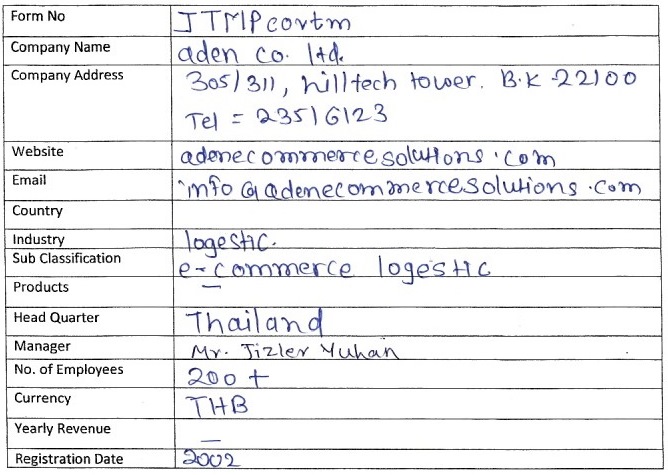 Form No JTMPcovtm
Company Name aden co. ltd.
Company Address 305/311, hilltech tower. B.K-22100
Tel = 23516123
Website adenecommercesolutions.com
Email info@adenecommercesolutions.com
Country
Industry logestic.
Sub Classification e-commerce logestic
Products —
Head Quarter Thailand
Manager Mr. Jizler Yuhan
No. of Employees 200+
Currency THB
Yearly Revenue —
Registration Date 2002